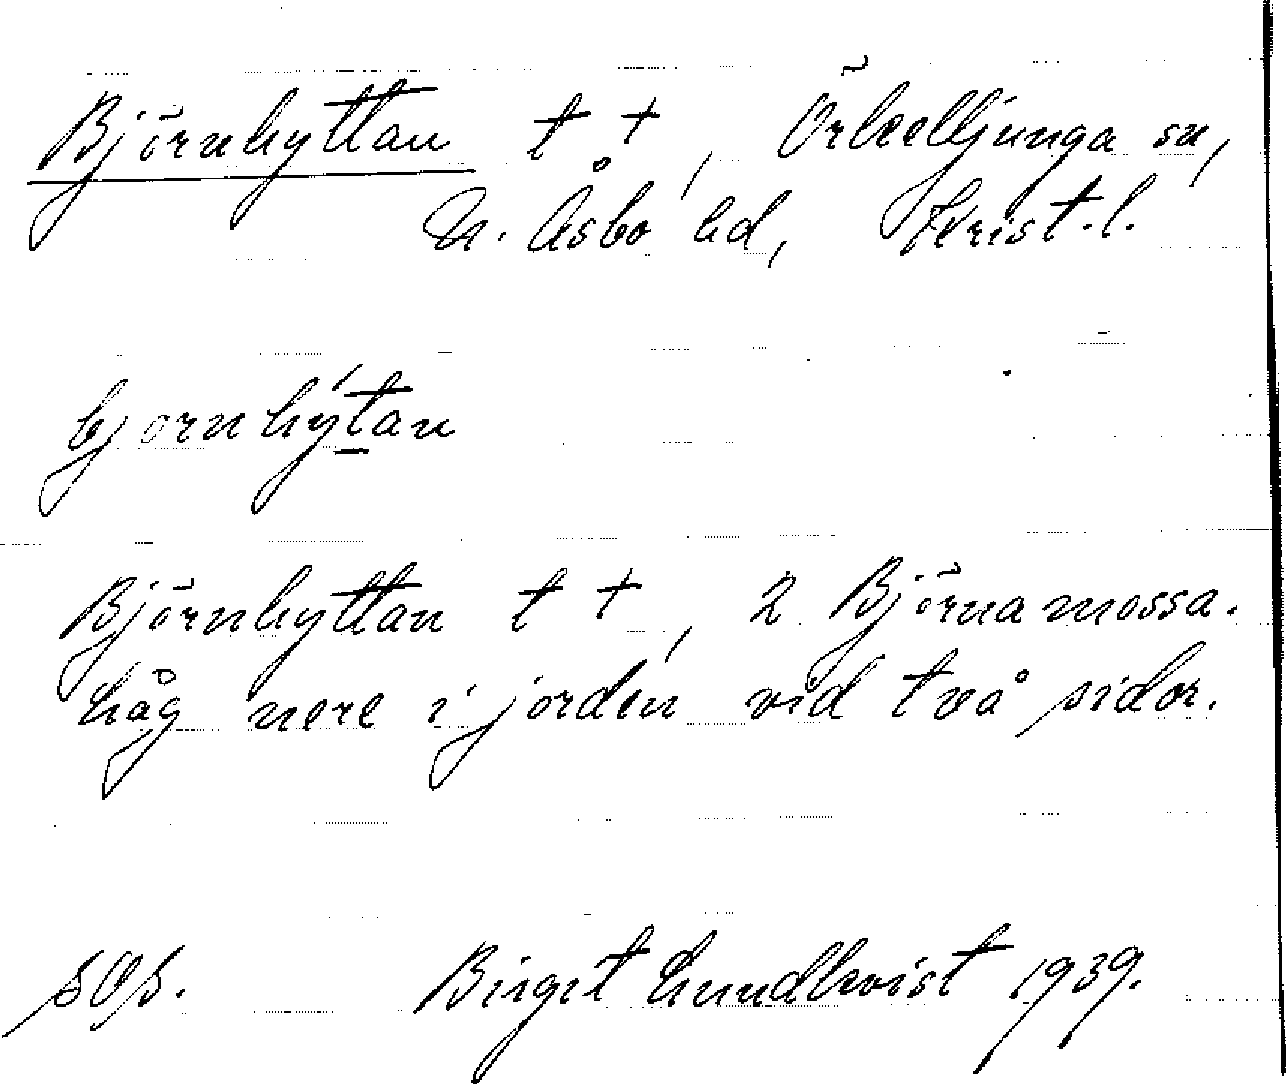 Björnhyttan t †, Örkelljunga sn,
N. Åsbo hd, Krist. l.
bjornhýtan
Björnhyttan t †, 2 Björnamossa.
håg nere i jorden vid två sidor.
Birgit Lundkvist 1939.